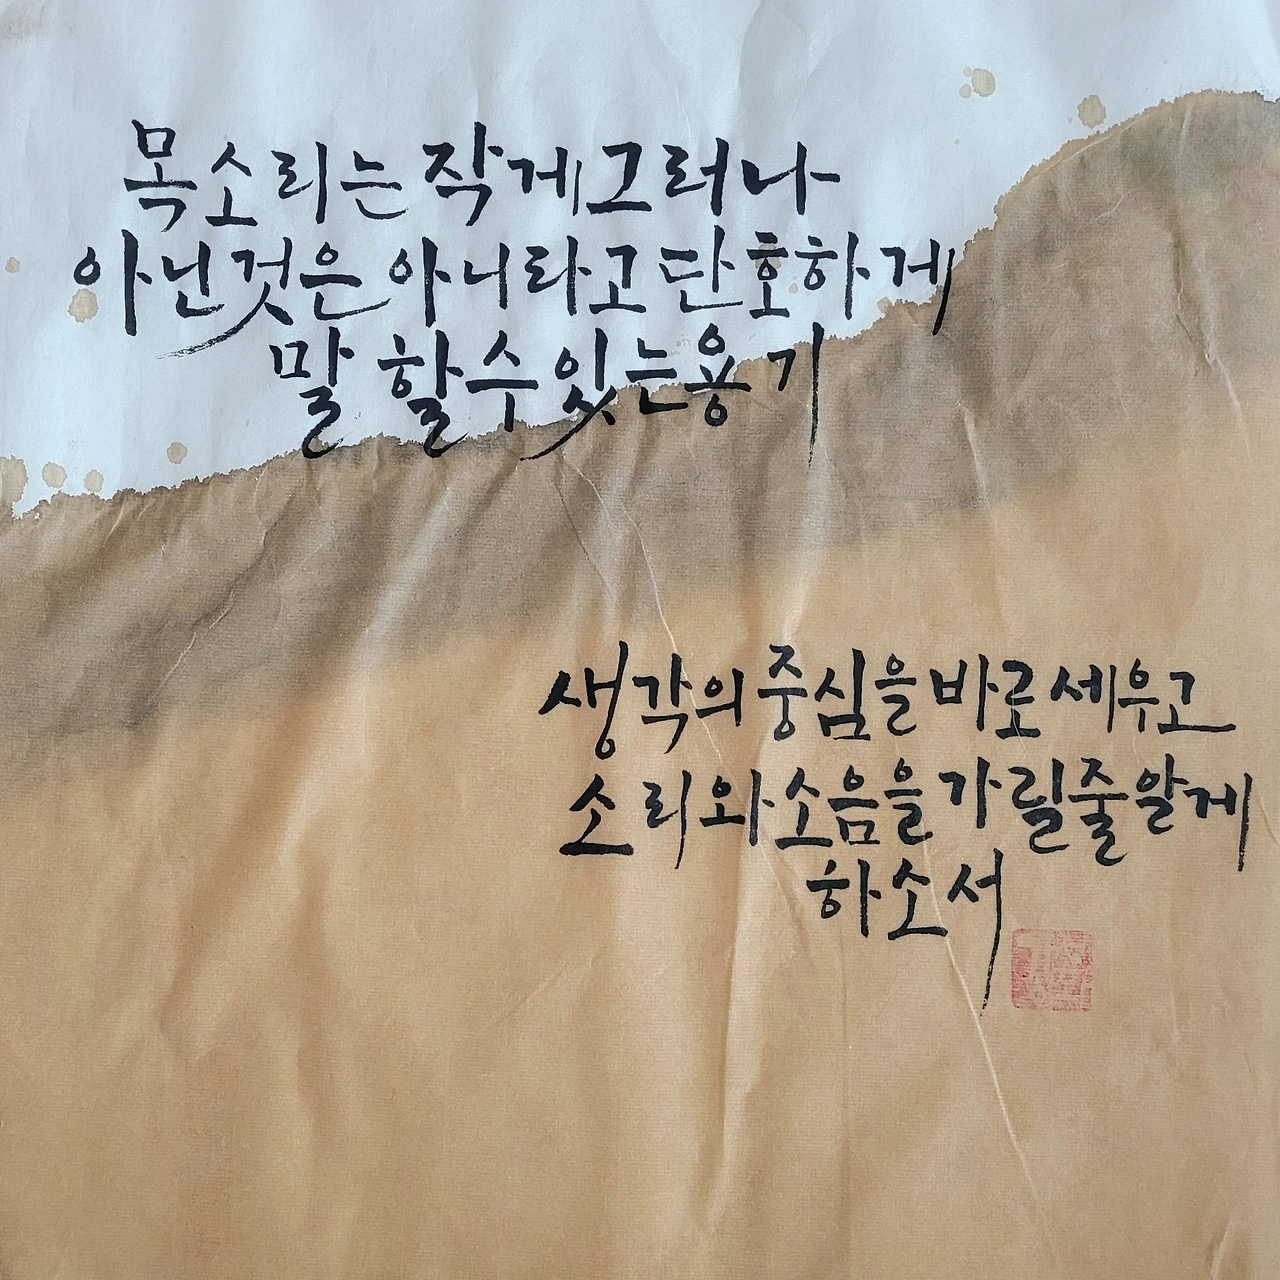 목소리는 작게 그러나
아닌것은 아니라고 단호하게
말 할수있는 용기
생각의 중심을 바로 세우고
소리와 소음을 가릴줄 알게
하소서